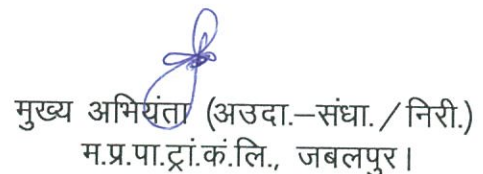 मुख्य अभियंता (अउदा.–संधा./निरी.)
म.प्र.पा.ट्रां.कं.लि., जबलपुर।